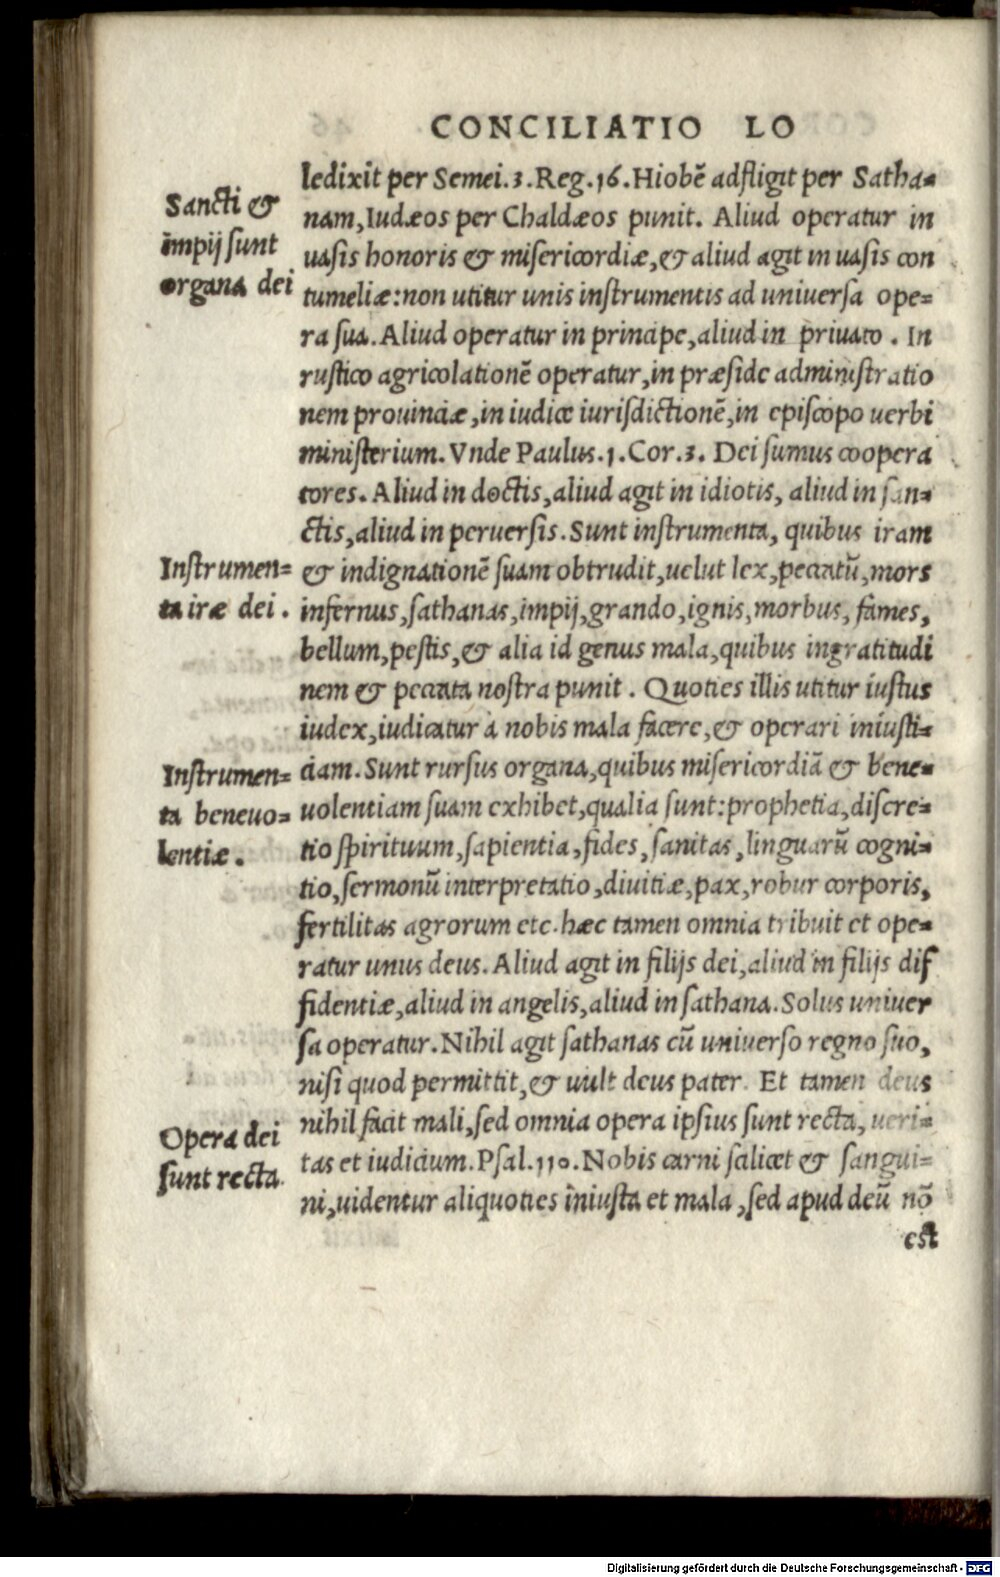 CONCILIATIO LO
Sancti &
impij sunt
organa dei
ledixit per Semei.3.Reg.16.Hiobē adfligit per Satha=
nam,Iudæos per Chaldæos punit. Aliud operatur in
uasis honoris & misericordiæ,& aliud agit in uasis con
tumeliæ:non utitur unis instrumentis ad uniuersa ope=
ra sua. Aliud operatur in principe,aliud in priuato. In
rustico agricolationē operatur,in præside administratio
nem prouinciæ,in iudice iurisdictionē,in episcopo uerbi
ministerium. Vnde Paulus.1.Cor.3. Dei sumus coopera
tores. Aliud in doctis,aliud agit in idiotis, aliud in san=
ctis,aliud in peruersis. Sunt instrumenta, quibus iram
Instrumen=
ta iræ dei.
& indignationē suam obtrudit,uelut lex,peccatū,mors
infernus,sathanas,impij,grando,ignis,morbus, fames,
bellum,pestis,& alia id genus mala,quibus ingratitudi
nem & peccata nostra punit. Quoties illis utitur iustus
iudex,iudicatur à nobis mala facere,& operari iniusti=
Instrumen=
ta beneuo=
lentiæ.
ciam. Sunt rursus organa,quibus misericordiā & bene=
uolentiam suam exhibet,qualia sunt:prophetia,discre=
tio spirituum,sapientia,fides,sanitas,linguarū cogni=
tio,sermonū interpretatio,diuitiæ,pax,robur corporis,
fertilitas agrorum etc.hæc tamen omnia tribuit et ope=
ratur unus deus. Aliud agit in filijs dei,aliud in filijs dif
fidentiæ,aliud in angelis,aliud in sathana. Solus uniuer
sa operatur. Nihil agit sathanas cū uniuerso regno suo,
nisi quod permittit,& uult deus pater. Et tamen deus
Opera dei
sunt recta.
nihil facit mali,sed omnia opera ipsius sunt recta, ueri=
tas et iudicium. Psal.110. Nobis carni scilicet & sangui=
ni,uidentur aliquoties iniusta et mala,sed apud deū nō
est
Digitalisierung gefördert durch die Deutsche Forschungsgemeinschaft - DFG